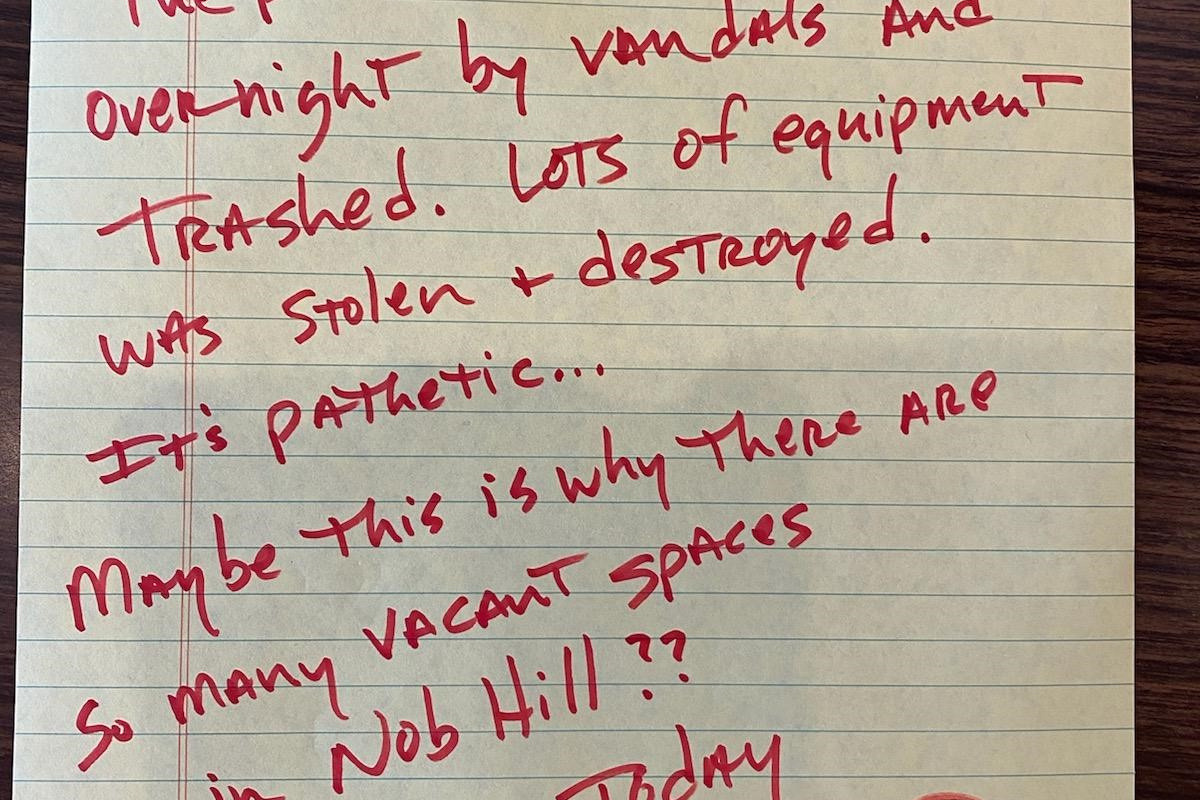 The
overnight by vandals and
Trashed. Lots of equipment
was stolen + destroyed.
It's pathetic...
Maybe this is why there are
so many vacant spaces
in Nob Hill??
Today